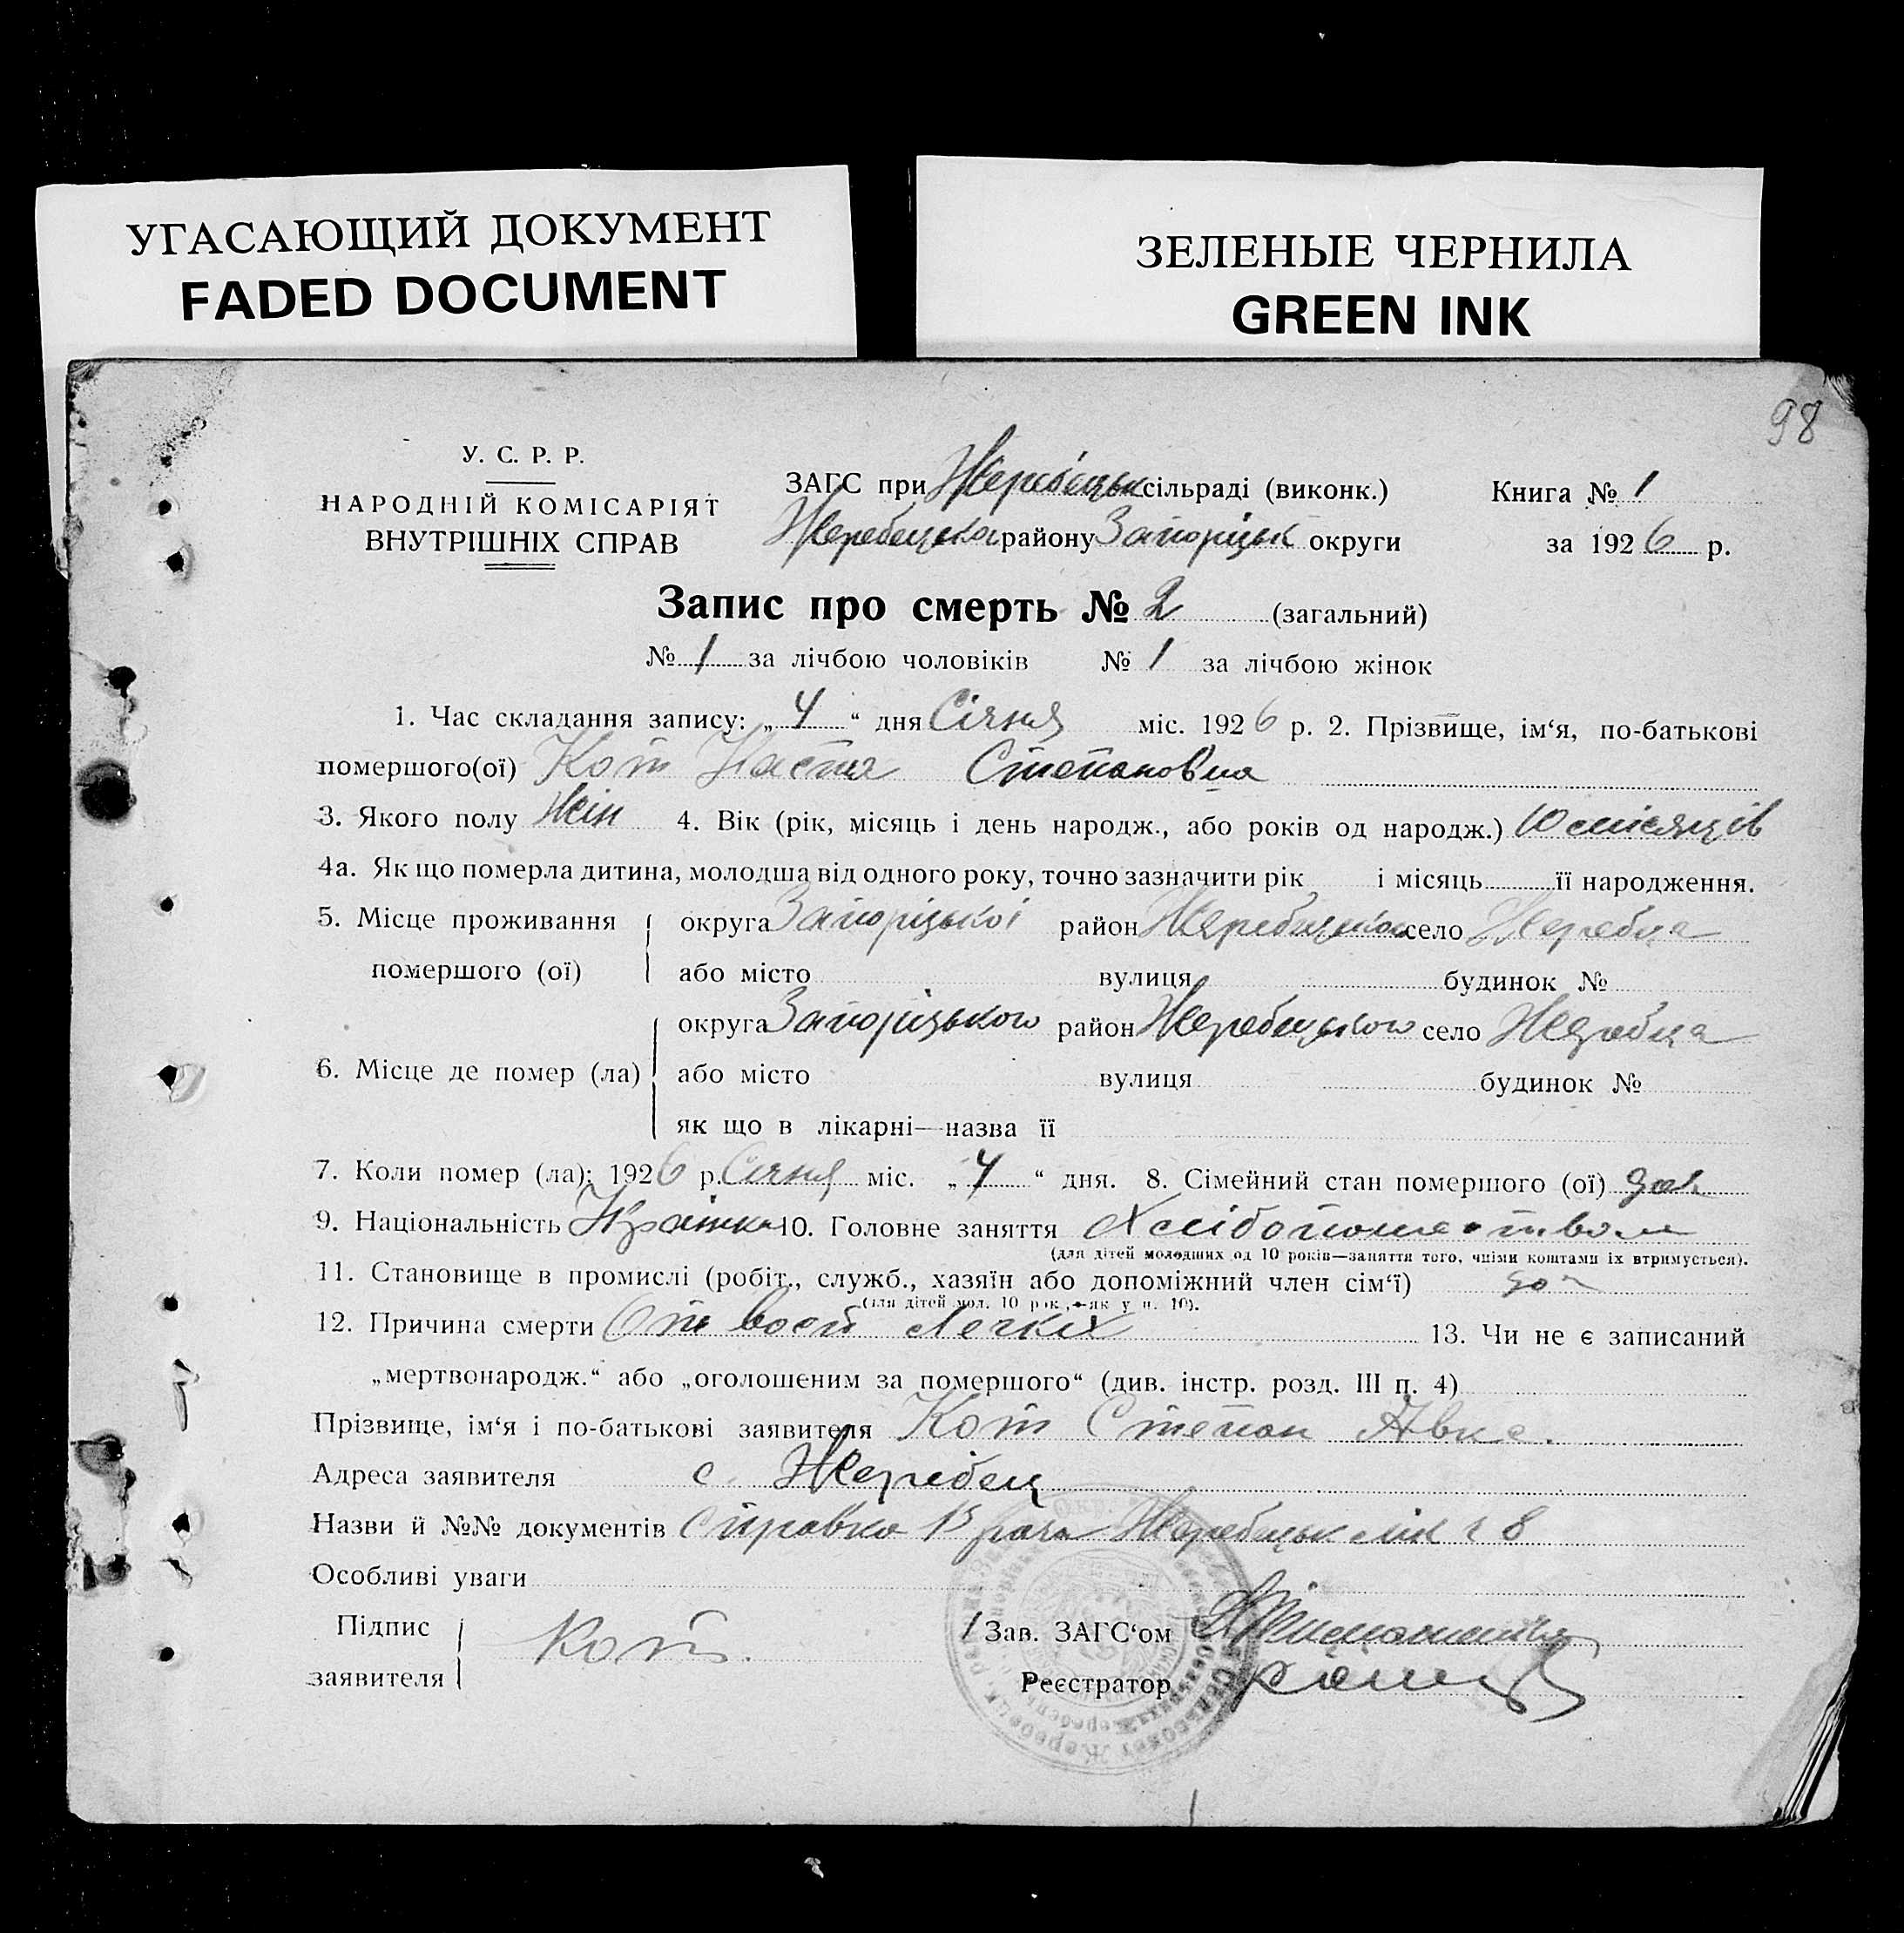 УГАСАЮЩИЙ ДОКУМЕНТ
FADED DOCUMENT
ЗЕЛЕНЫЕ ЧЕРНИЛА
GREEN INK
98
У. С. Р. Р.
НАРОДНІЙ КОМІСАРІЯТ
ВНУТРІШНІХ СПРАВ
ЗАГС при Жеребецьк сільраді (виконк.)
Жеребецького району Запоріцьк округи
Книга № 1
за 1926 р.
Запис про смерть № 2 (загальний)
№ 1 за лічбою чоловіків № 1 за лічбою жінок
1. Час складання запису: „4“ дня Січня міс. 1926 р. 2. Прізвище, ім‘я, по-батькові
помершого(ої) Кот Настя Степановна
3. Якого полу Жін 4. Вік (рік, місяць і день народж., або років од народж.) 10 місяців
4а. Як що померла дитина, молодша від одного року, точно зазначити рік і місяць її народження.
5. Місце проживання помершого (ої) округа Запоріцької район Жеребецького село Жеребца
або місто вулиця будинок №
6. Місце де помер (ла) округа Запоріцького район Жеребецького село Жеребца
або місто вулиця будинок №
як що в лікарні—назва її
7. Коли помер (ла): 1926 р. Січня міс. „4“ дня. 8. Сімейний стан помершого (ої)
9. Національність Українка 10. Головне заняття
(для дітей молодших од 10 років—заняття того, чиїми коштами їх втримується).
11. Становище в промислі (робіт., служб., хазяїн або допоміжний член сім‘ї)
(для дітей мол. 10 рок., як у п. 10).
12. Причина смерти От восп Легких 13. Чи не є записаний
„мертвонародж.“ або „оголошеним за помершого“ (див. інстр. розд. III п. 4)
Прізвище, ім‘я і по-батькові заявителя Кот Степан Авкс.
Адреса заявителя с. Жеребец
Назви й №№ документів Справка Врача Жеребецьк лік 8
Особливі уваги
Підпис заявителя Кот.
Зав. ЗАГС‘ом
Реєстратор